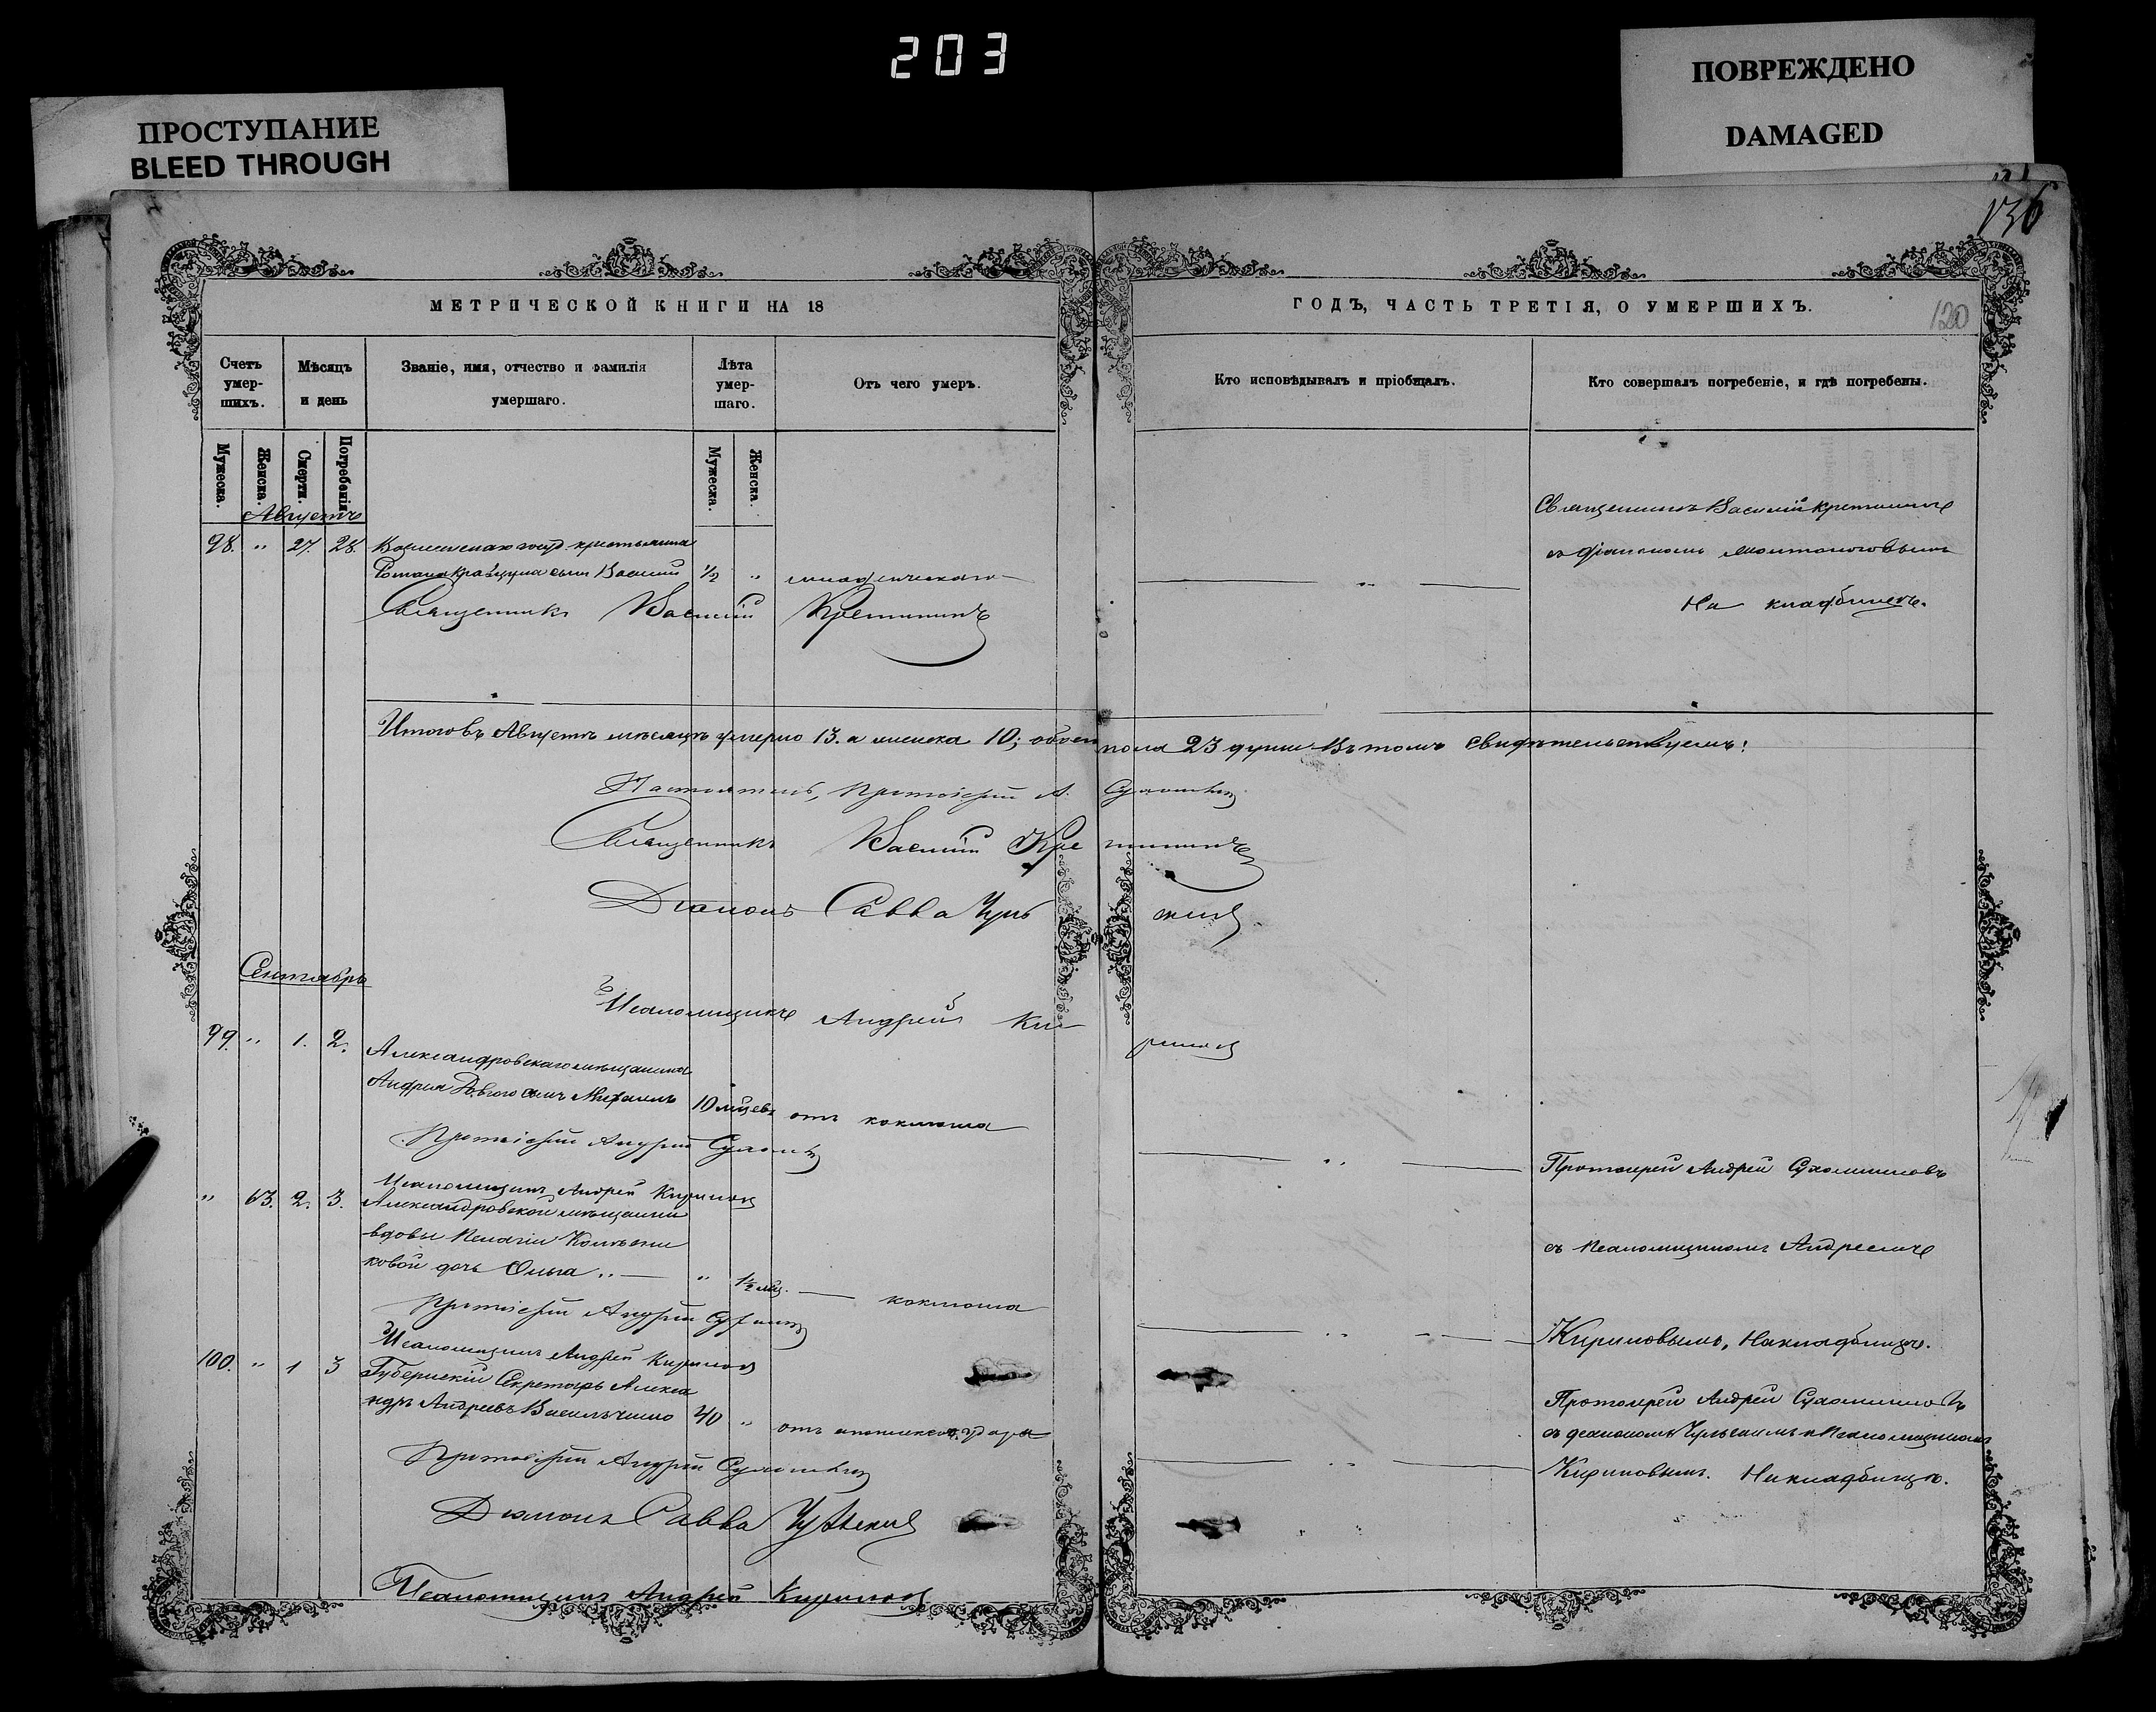 203
ПРОСТУПАНИЕ
BLEED THROUGH
ПОВРЕЖДЕНО
DAMAGED
136
120
МЕТРИЧЕСКОЙ КНИГИ НА 18
ГОДЪ, ЧАСТЬ ТРЕТІЯ, О УМЕРШИХЪ.
Счетъ умер-шихъ.
Мѣсяцъ и день
Званіе, имя, отчество и фамилія умершаго.
Лѣта умер-шаго.
Отъ чего умеръ.
Кто исповѣдывалъ и пріобщалъ.
Кто совершалъ погребеніе, и гдѣ погребены.
Мужеска.
Женска.
Смерти.
Погребенія
Мужеска.
Женска.
Августъ
98. " 27. 28.
крестьянина
сынъ Василій ½ " младенческаго
Священникъ Василій Кретининъ
Священникъ Василій Кретининъ
съ діакономъ
На кладбищѣ.
Итого въ Августѣ мѣсяцѣ умерло 13. а женска 10; обоего пола 23 души. Въ томъ свидѣтельствуемъ:
Настоятель, Протоіерей А. Сухомлиновъ
Священникъ Василій Кретининъ
Діаконъ Савва Чульскій
Псаломщикъ Андрей Кириловъ
Сентябрь
99. " 1. 2.
Александровскаго мѣщанина
Андрея сынъ Михаилъ 10 мѣсяц. отъ коклюша
Протоіерей Андрей Сухомлиновъ
Псаломщикъ Андрей Кириловъ
Протоіерей Андрей Сухомлиновъ
" 63. 2. 3.
Александровской мѣщанки
вдовы Пелагіи Колесни
ковой дочь Ольга " 1½ мѣс. коклюша
Протоіерей Андрей Сухомлиновъ
Псаломщикъ Андрей Кириловъ
съ Псаломщикомъ Андреемъ
Кириловымъ, На кладбищѣ.
100. " 1 3
Губернскій Секретарь Алекса
ндръ Андреевъ Васильченко 40 " отъ апоплексич. удара
Протоіерей Андрей Сухомлиновъ
Діаконъ Савва Чульскій
Псаломщикъ Андрей Кириловъ
Протоіерей Андрей Сухомлиновъ
съ діакономъ Чульскимъ и Псаломщикомъ
Кириловымъ. На кладбищѣ.